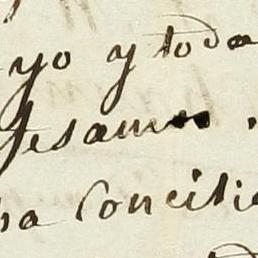 yo y toda
fesamos.
ha Concilia